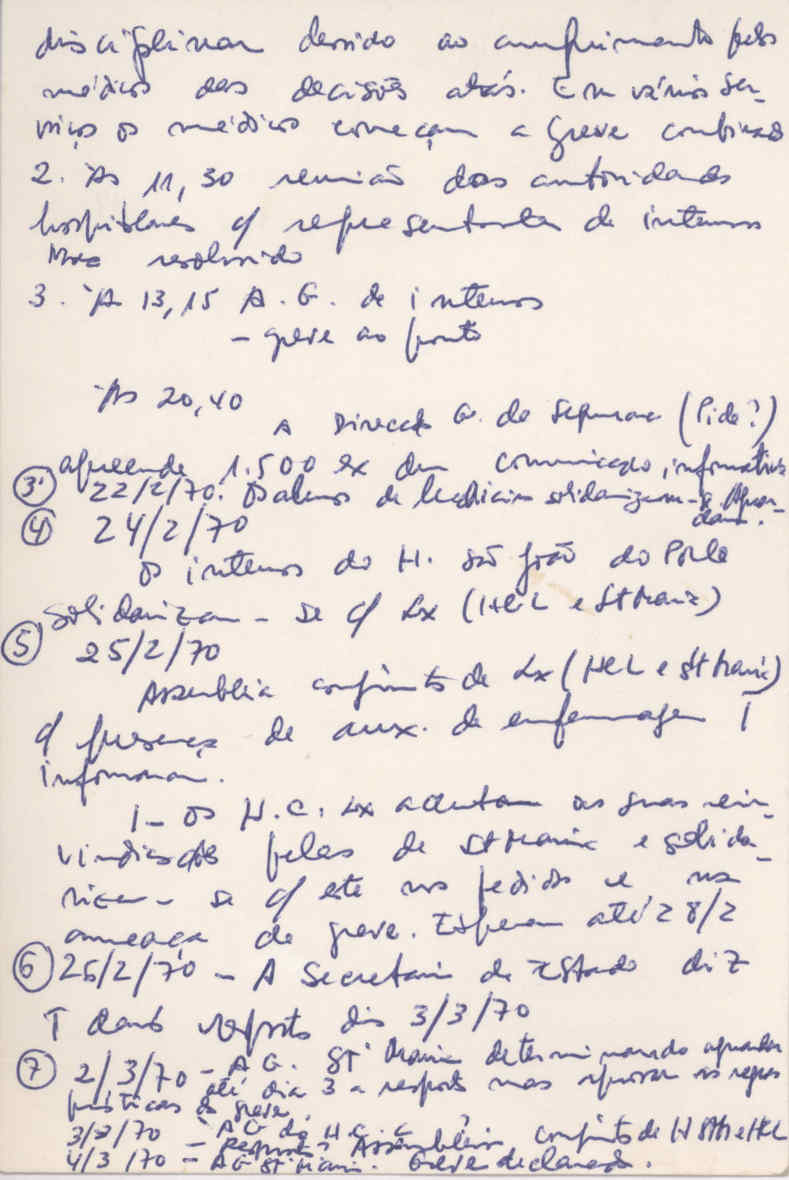 disciplinar devido ao cumprimento pelos
médicos das decisões atrás. Em vários ser-
viços os médicos começam a greve combinada
2. Às 11,30 reunião das autoridades
hospitalares c/ representantes de internos
resolvido
3. Às 13,15 A.G. de internos
- greve ao ponto
Às 20,40
A Direcção G. de Segurança (Pide?)
apreende 1.500 ex dum comunicado informativo
3' 22/2/70. Os alunos de Medicina solidarizam-se
4 24/2/70
Os internos do H. São João do Porto
solidarizam-se c/ Lx (HCL e St Maria)
5 25/2/70
Assembleia conjunta de Lx (HCL e St Maria)
c/ presença de aux. de enfermagem
informaram.
1- Os H.C. Lx adentam as suas rein-
vindicações pelas de St Maria e solida-
rizam-se c/ este nos pedidos e na
ameaça de greve. Esperam até 28/2
6 25/2/70 - A Secretaria de Estado diz
T dará resposta dia 3/3/70
7 2/3/70 - A G. St Maria determinando aguardar
até dia 3 a resposta mas aprovar as regras
práticas da greve.
3/3/70 - A G do H.C.L
Resposta? Assembleia conjunta de H St M e HCL
4/3/70 - AG St Maria. Greve declarada.